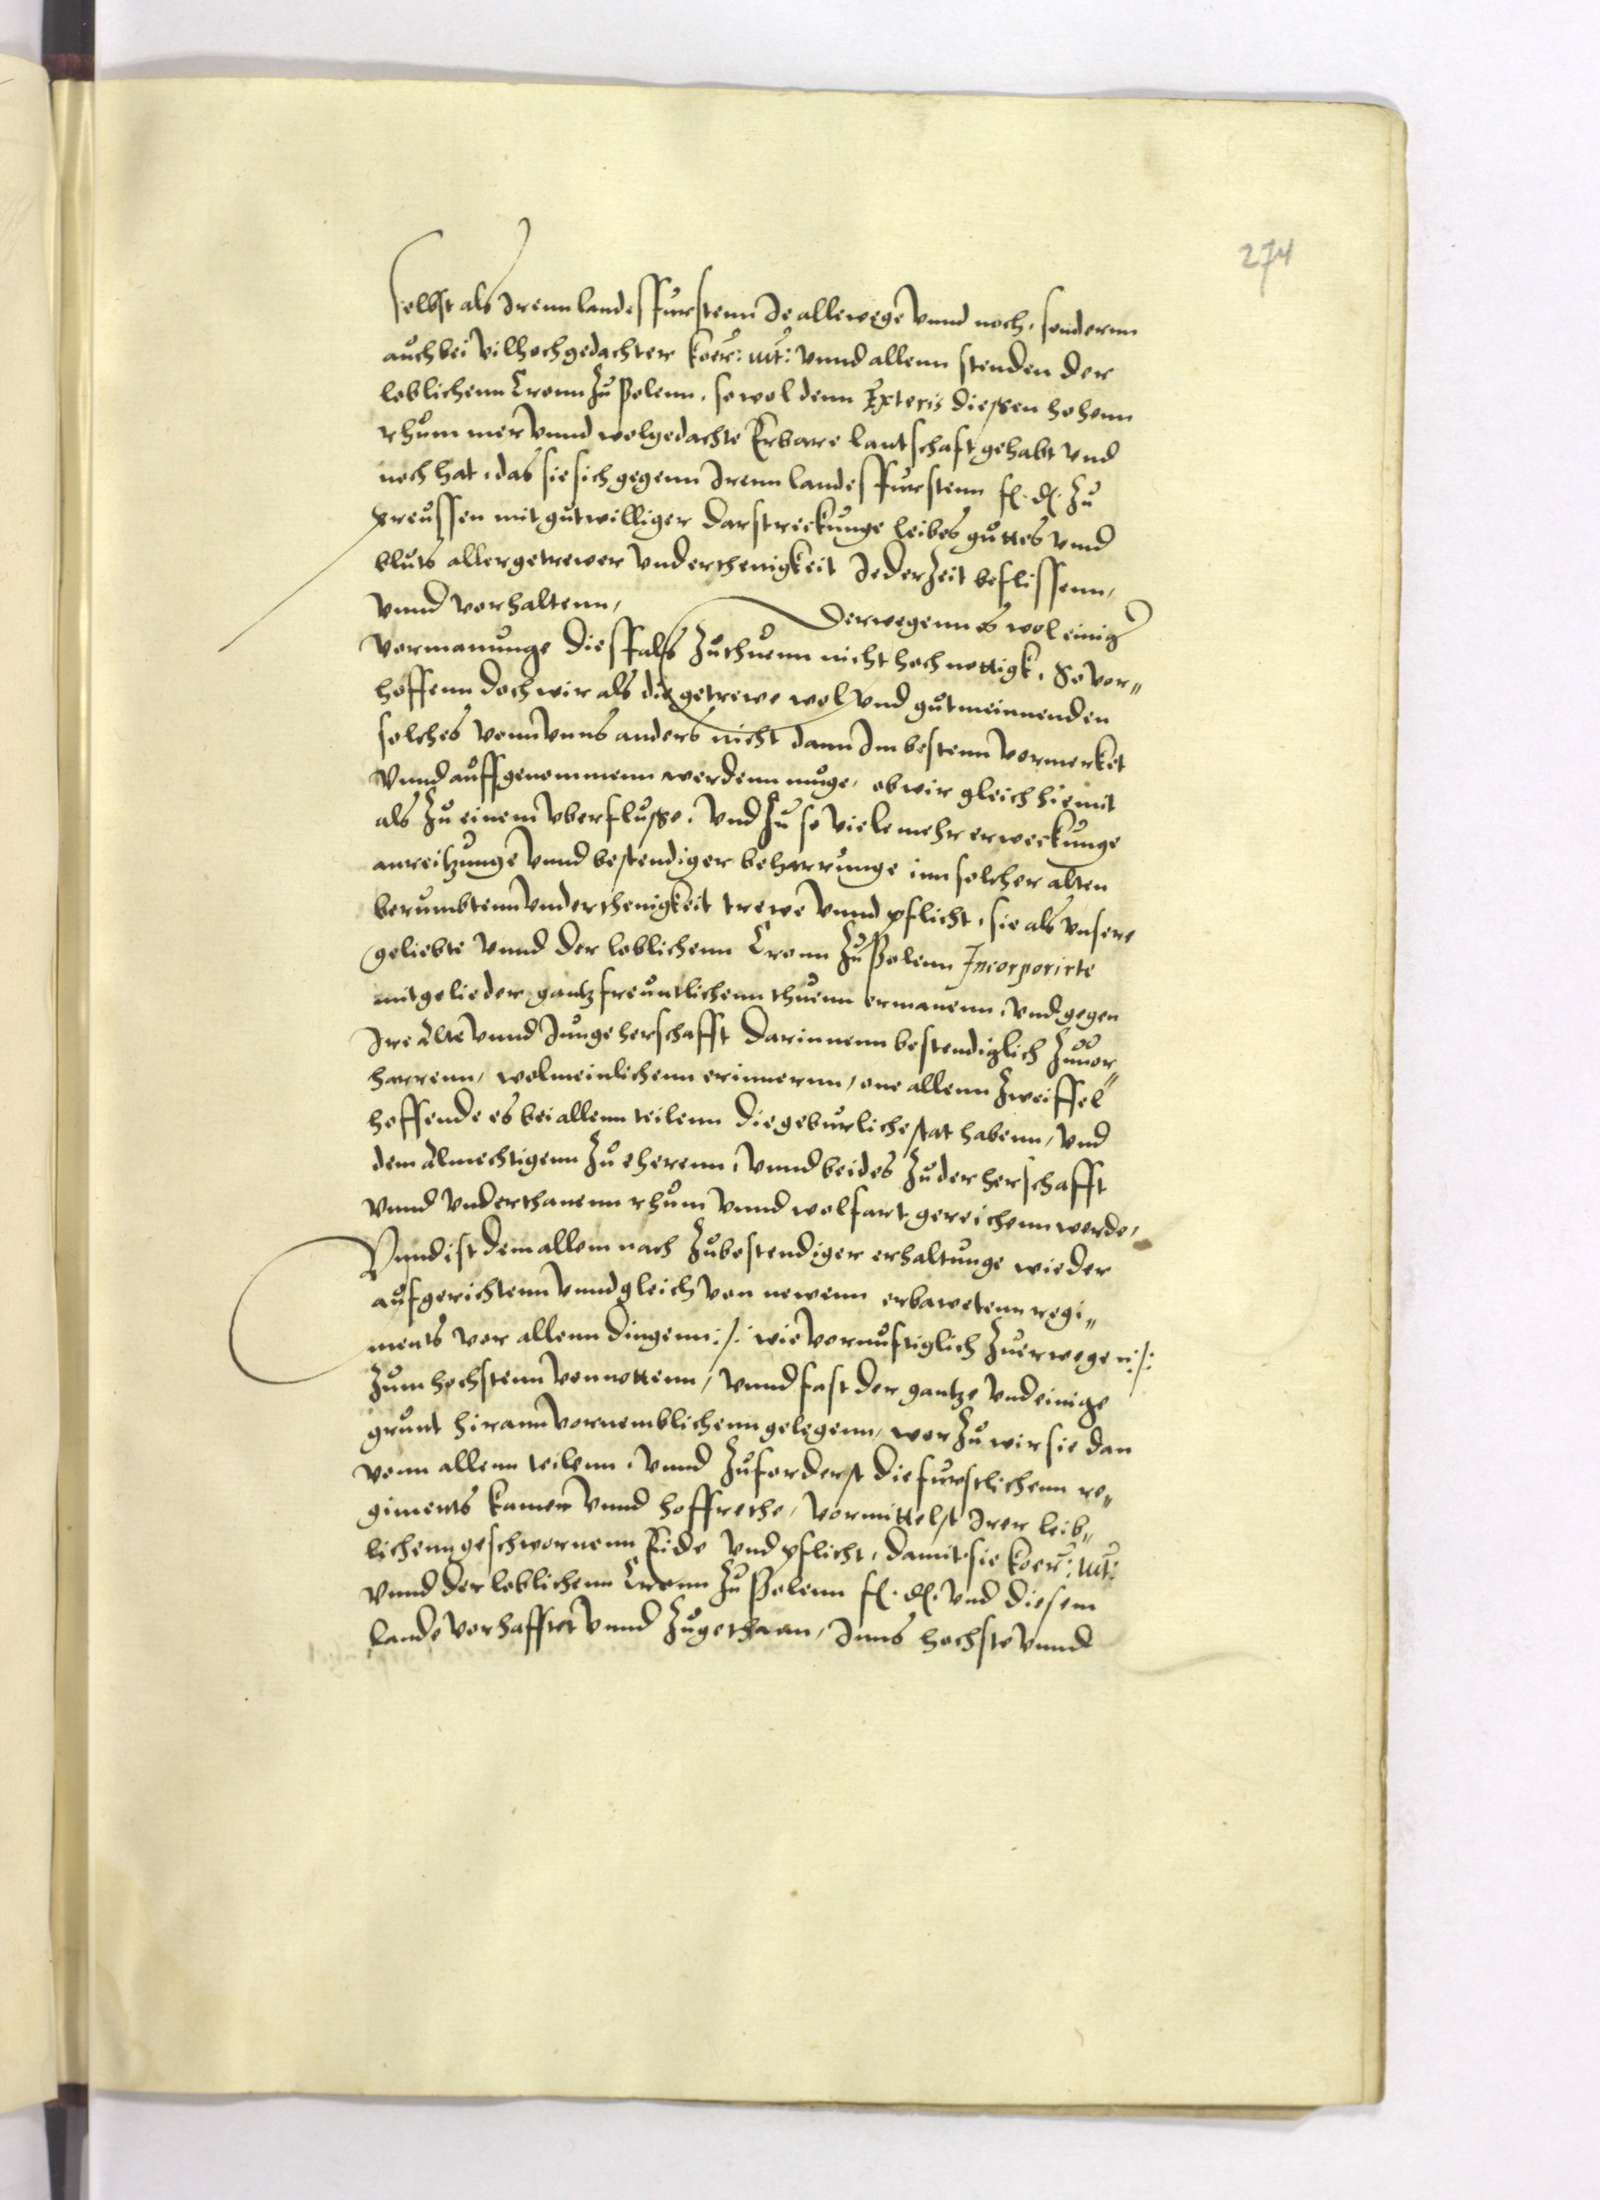 274
selbst als Irenn landesffurstenn Je allewege vnnd noch, sondernn
auch bei vilhochgedachter koer: mt: vnnd allenn stenden der
loblichenn Cronn Zu Polenn, so wol denn Exteris dießen hohenn
rhum mer vnnd wolgedachte Erbare lantschaft gehabt vnd
noch hat, das sie sich gegenn Irenn landesffurstenn f. d. Zu
preussen mit gutwilliger darstreckunge leibes guttes vnnd
bluts allergetrewer vnderthenigkeit Jeder Zeit beflissenn,
vnnd vorhaltenn, Derwegenn es wol einig
vormanunge diessfals Zuthuenn nicht hoch nottigk, So vor„
hoffenn doch wir als die getrewe wol vnd gutmeinnenden
solches vonn vnns anders nicht dann Im bestenn vormerket
vnnd auffgenommenn werdenn muge, ob wir gleich hiemit
als Zu einem vberfluße, vnd Zu so viele mehr erweckunge
anreitzunge vnnd bestendiger beharrunge inn solcher alten
berumbtenn vnderthenigkeit trewe vnnd pflicht, sie als vnsere
geliebte vnnd der loblichenn Cronn Zu Polenn Incorporirte
mitgelieder gantz freuntlichenn thuenn ermanenn, vnd gegen
Ire alte vnnd Junge herschafft darinnenn bestendiglich Zuuor„
harrenn, wolmeinlichenn erinnernn, one allenn Zweiffel
hoffende es bei allenn teilenn die geburliche stat habenn, vnd
dem almechtigenn Zu eherenn, vnnd beides Zu der herschafft
vnnd vnderthanenn rhum vnnd wolfart gereichenn werde,
Vnnd ist dem allem nach Zu bestendiger erhaltunge wieder
aufgerichtenn vnnd gleich von newenn erbawetenn regi„
ments vor allenn dingenn :/: wie vornuftiglich Zuerwegen :/:
Zum hochstenn vonnottenn, vnnd fast der gantze vnd einige
grunt hirann vornemblichenn gelegenn, wor Zu wir sie dan
vonn allenn teilenn, vnnd Zuforderst die furstlichenn re„
giments kamer vnnd hoffrethe, vormittelst Irer leib„
lichenn geschwornenn Eide vnd pflicht, damit sie koer: mt:
vnnd der loblichenn Cronn Zu Polenn f. d. vnd diesem
lande vorhafftet vnnd Zugethaan, Inns hochste vnnd